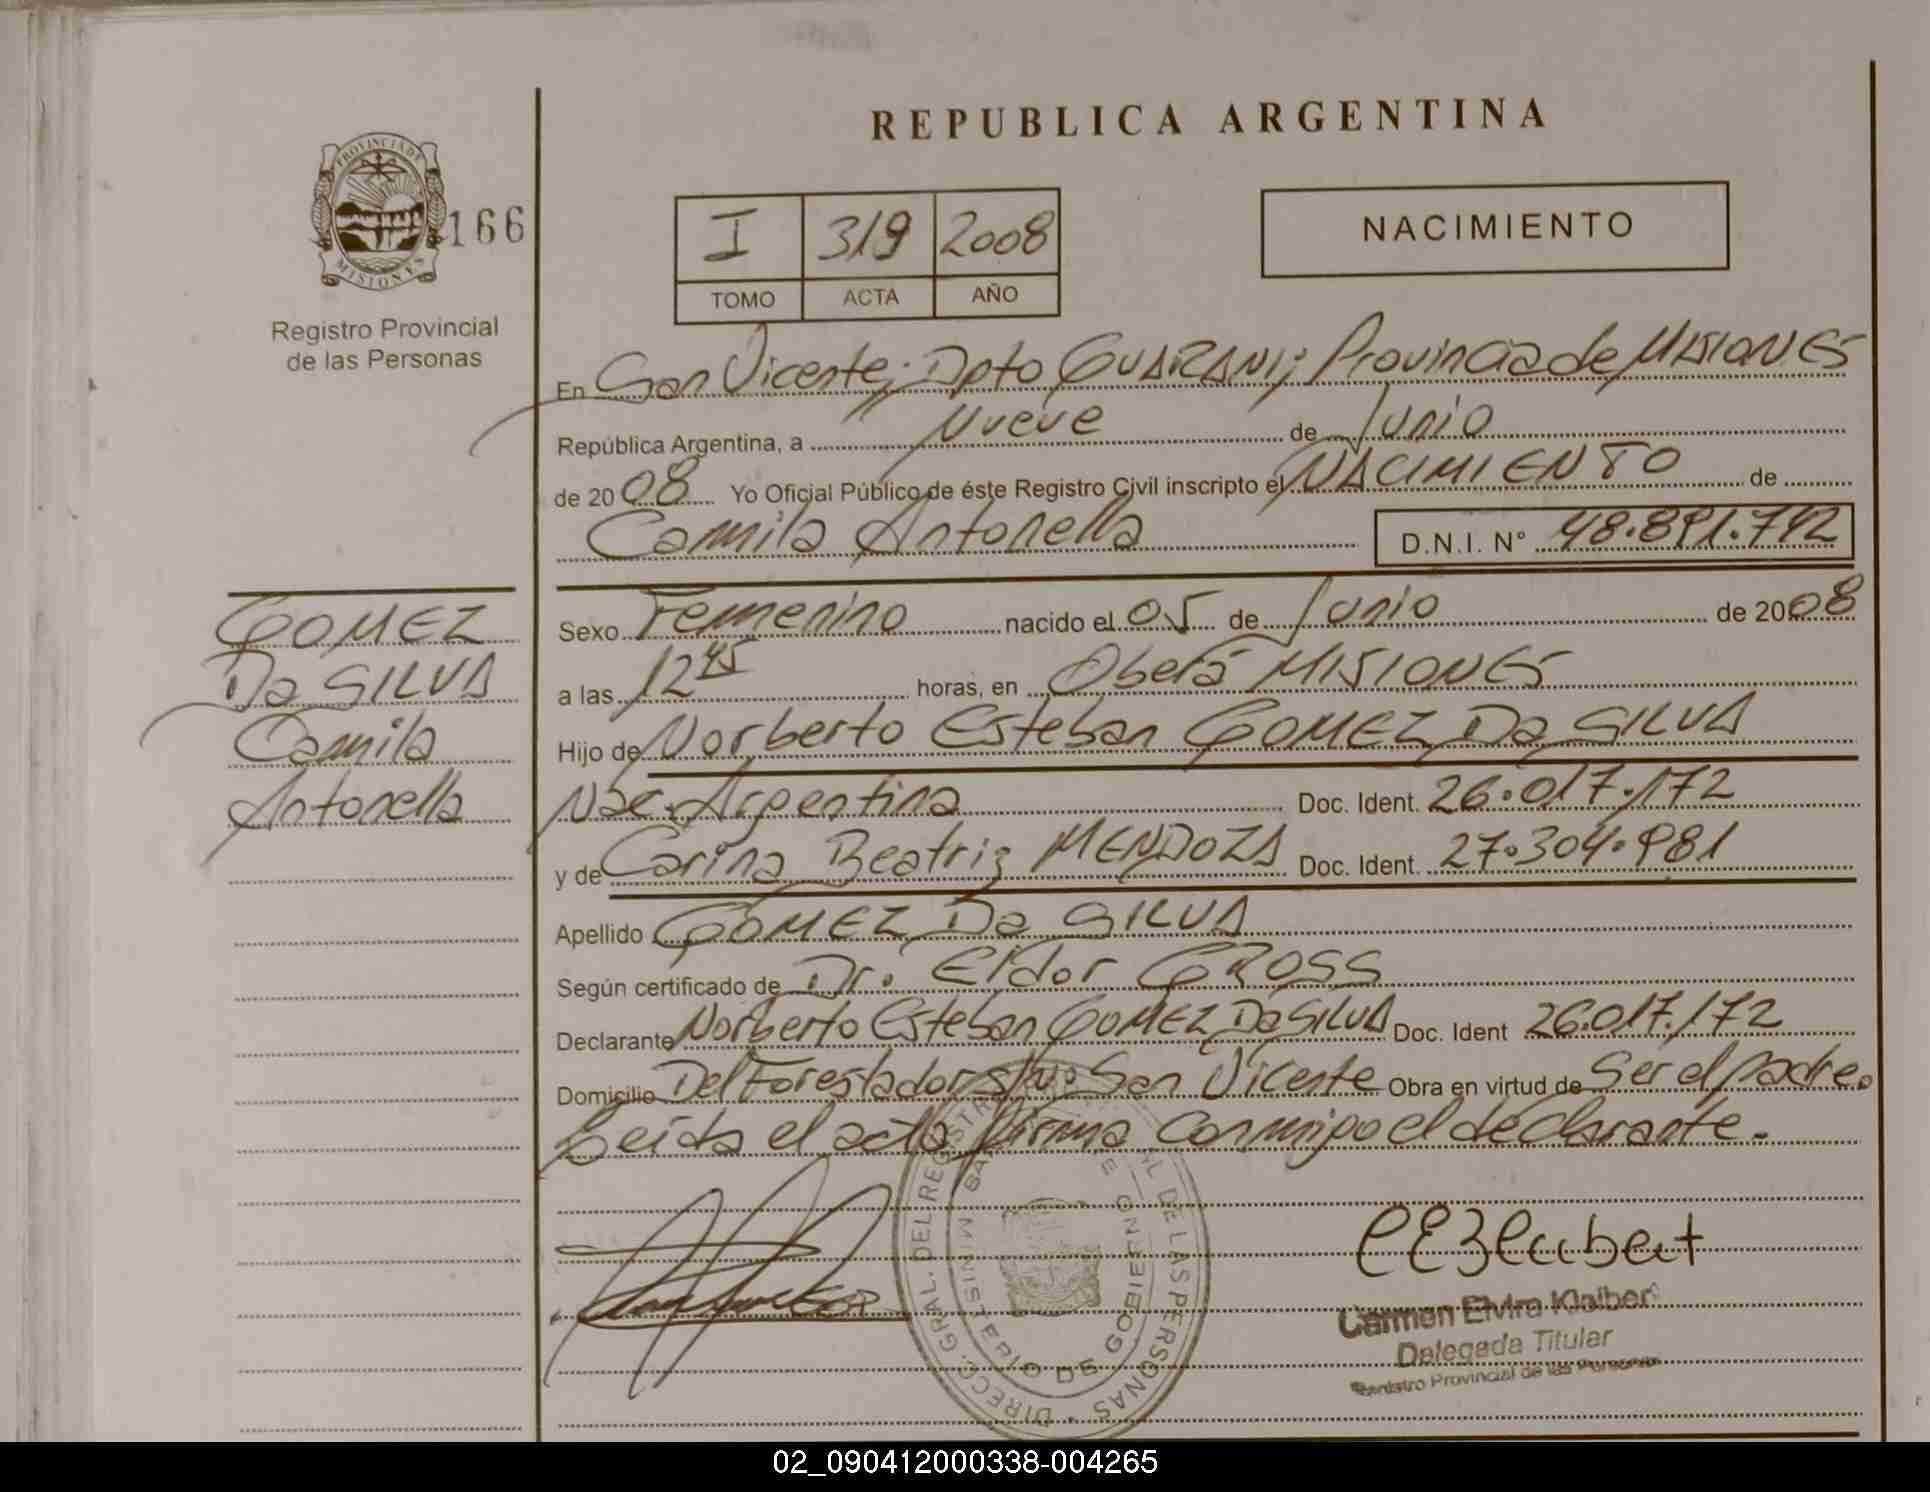 REPUBLICA ARGENTINA
PROVINCIA DE MISIONES
166
Registro Provincial
de las Personas
I 319 2008
TOMO ACTA AÑO
NACIMIENTO
En San Vicente; Dpto GUARANI; Provincia de MISIONES
República Argentina, a Nueve de Junio
de 2008 Yo Oficial Público de éste Registro Civil inscripto el NACIMIENTO de
Camila Antonella D.N.I. N° 48.891.792
GOMEZ
Da SILVA
Camila
Antonella
Sexo Femenino nacido el 05 de Junio de 2008
a las 12 45 horas, en Oberá MISIONES
Hijo de Norberto Esteban GOMEZ Da SILVA
Nac. Argentina Doc. Ident. 26.017.172
y de Carina Beatriz MENDOZA Doc. Ident. 27.304.981
Apellido GOMEZ Da SILVA
Según certificado de Dr. Eldor GROSS
Declarante Norberto Esteban GOMEZ Da SILVA Doc. Ident 26.017.172
Domicilio Del Forestador s/n° San Vicente Obra en virtud de Ser el padre.
Leída el acta firma conmigo el declarante.
DIRECC. GRAL. DEL REGISTRO DE LAS PERSONAS
MINISTERIO DE GOBIERNO
Carmen Elvira Klaiber
Delegada Titular
Registro Provincial de las Personas
02_090412000338-004265